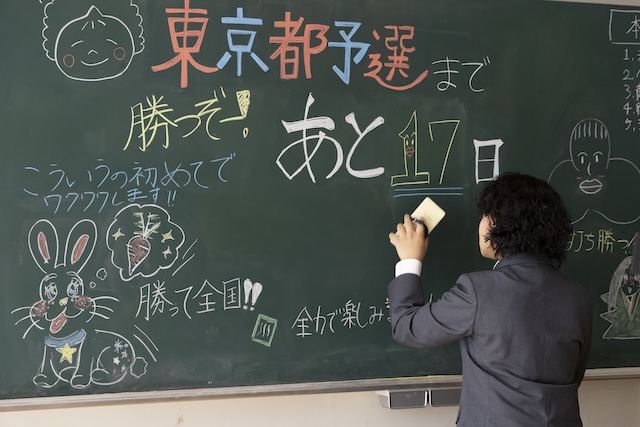 東京都予選まで
勝つぞー!
あと17日
こういうの初めてで
ワクワクします!!
勝って全国!!
全力で楽しみま
打ち勝つ
本
1.
2.
3.
4.
5.